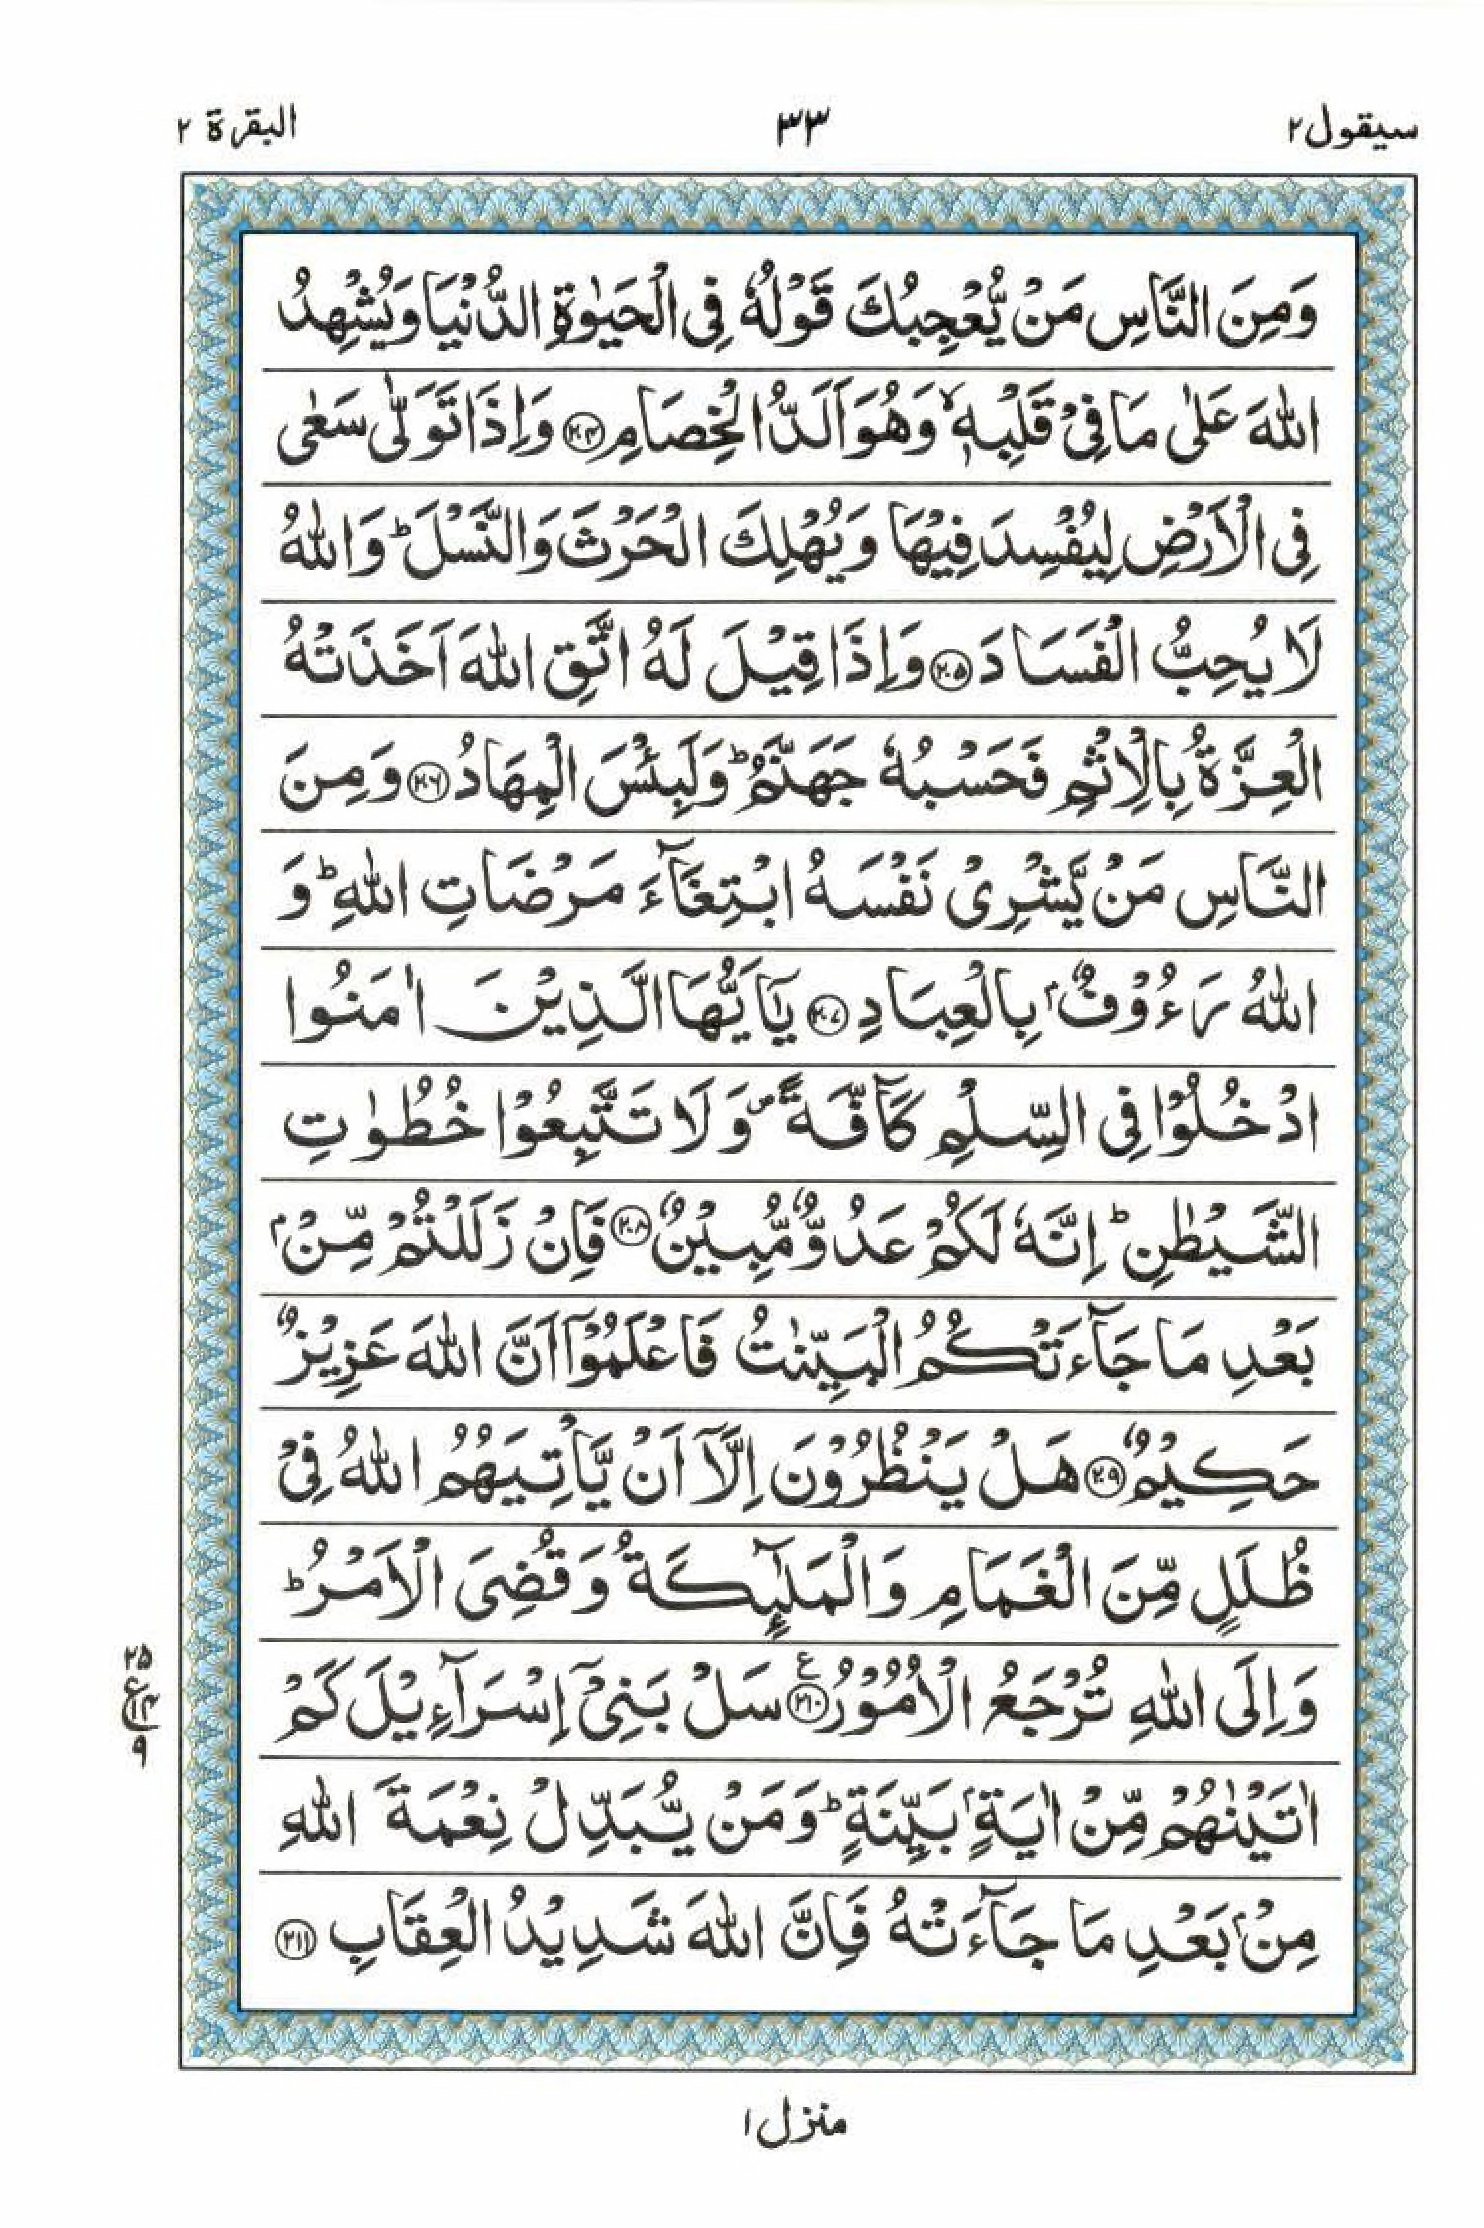 سیقول ٢
٣٣
البقرة ٢
وَمِنَ النَّاسِ مَنْ يُّعْجِبُكَ قَوْلُهٗ فِى الْحَيٰوةِ الدُّنْيَا وَيُشْهِدُ
اللّٰهَ عَلٰى مَا فِىْ قَلْبِهٖ ۙ وَهُوَ اَلَدُّ الْخِصَامِ ﴿۲۰۴﴾ وَاِذَا تَوَلّٰى سَعٰى
فِى الْاَرْضِ لِيُفْسِدَ فِيْهَا وَيُهْلِكَ الْحَرْثَ وَالنَّسْلَ ؕ وَاللّٰهُ
لَا يُحِبُّ الْفَسَادَ ﴿۲۰۵﴾ وَاِذَا قِيْلَ لَهُ اتَّقِ اللّٰهَ اَخَذَتْهُ
الْعِزَّةُ بِالْاِثْمِ فَحَسْبُهٗ جَهَنَّمُ ؕ وَلَبِئْسَ الْمِهَادُ ﴿۲۰۶﴾ وَمِنَ
النَّاسِ مَنْ يَّشْرِىْ نَفْسَهُ ابْتِغَآءَ مَرْضَاتِ اللّٰهِ ؕ وَ
اللّٰهُ رَءُوْفٌۢ بِالْعِبَادِ ﴿۲۰۷﴾ يٰٓاَيُّهَا الَّذِيْنَ اٰمَنُوا
ادْخُلُوْا فِى السِّلْمِ كَآفَّةً ۪ وَلَا تَتَّبِعُوْا خُطُوٰتِ
الشَّيْطٰنِ ؕ اِنَّهٗ لَكُمْ عَدُوٌّ مُّبِيْنٌ ﴿۲۰۸﴾ فَاِنْ زَلَلْتُمْ مِّنْۢ
بَعْدِ مَا جَآءَتْكُمُ الْبَيِّنٰتُ فَاعْلَمُوْٓا اَنَّ اللّٰهَ عَزِيْزٌ
حَكِيْمٌ ﴿۲۰۹﴾ هَلْ يَنْظُرُوْنَ اِلَّآ اَنْ يَّاْتِيَهُمُ اللّٰهُ فِىْ
ظُلَلٍ مِّنَ الْغَمَامِ وَالْمَلٰٓئِكَةُ وَقُضِىَ الْاَمْرُ ؕ
وَاِلَى اللّٰهِ تُرْجَعُ الْاُمُوْرُ ﴿۲۱۰﴾ ع سَلْ بَنِىْٓ اِسْرَآءِيْلَ كَمْ
اٰتَيْنٰهُمْ مِّنْ اٰيَةٍۢ بَيِّنَةٍ ؕ وَمَنْ يُّبَدِّلْ نِعْمَةَ اللّٰهِ
مِنْۢ بَعْدِ مَا جَآءَتْهُ فَاِنَّ اللّٰهَ شَدِيْدُ الْعِقَابِ ﴿۲۱۱﴾
۲۵
ع ۱۴
۹
منزل ۱